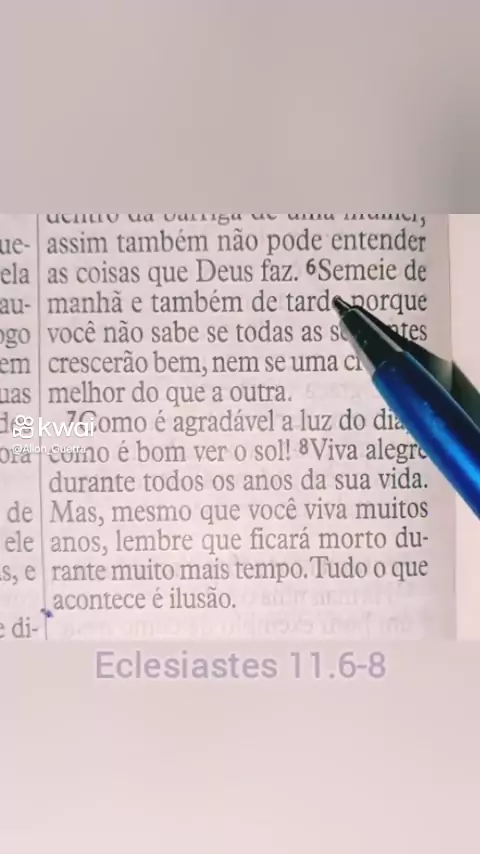 dentro da barriga de uma mulher,
assim também não pode entender
as coisas que Deus faz. 6Semeie de
manhã e também de tarde porque
você não sabe se todas as
crescerão bem, nem se uma
melhor do que a outra.
7Como é agradável a luz do dia,
como é bom ver o sol! 8Viva alegre
durante todos os anos da sua vida.
Mas, mesmo que você viva muitos
anos, lembre que ficará morto du-
rante muito mais tempo. Tudo o que
acontece é ilusão.
ue-
ela
au-
ogo
em
uas
ora
de
ele
s, e
e di-
kwai
@Alion_Guerra
Eclesiastes 11.6-8